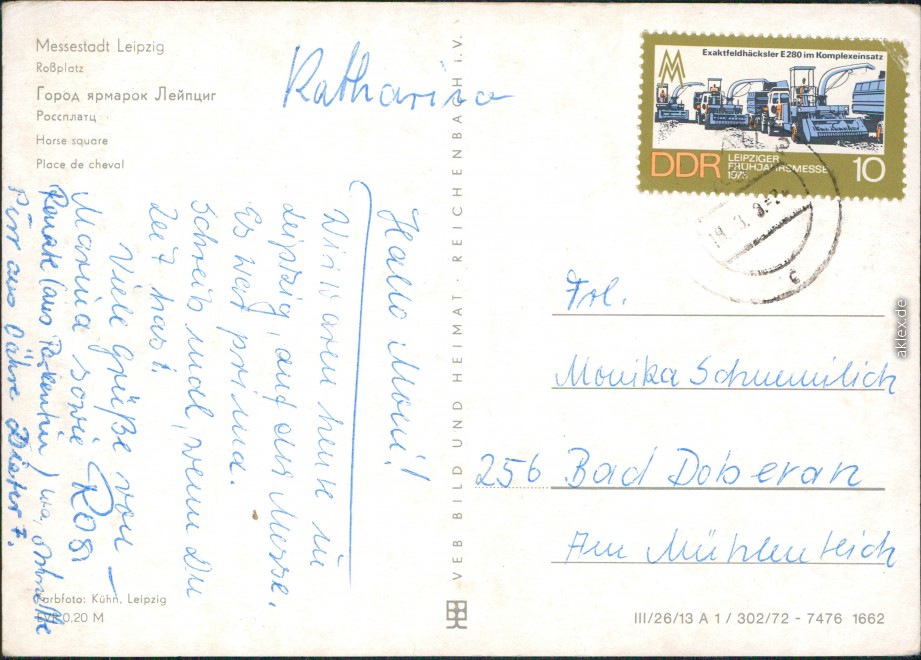 Messestadt Leipzig
Roßplatz
Город ярмарок Лейпциг
Россплатц
Horse square
Place de cheval
Katharina
Hallo Moni!
Wir waren heute in
Leipzig, auf der Messe.
Es war prima.
Schreib mal, wenn Du
Zeit hast.
Viele Grüße von
Marina sowie Rosi
Renate (aus Parkentin) und
aus Dieter
VEB BILD UND HEIMAT · REICHENBACH i. V.
Exaktfeldhäcksler E 280 im Komplexeinsatz
MM
DDR
LEIPZIGER
FRÜHJAHRSMESSE
1973
10
Frl.
Monika Schummilich
256 Bad Doberan
Am Mühlenteich
Farbfoto: Kühn, Leipzig
0,20 M
III/26/13 A 1 / 302/72 - 7476 1662
aklex.de